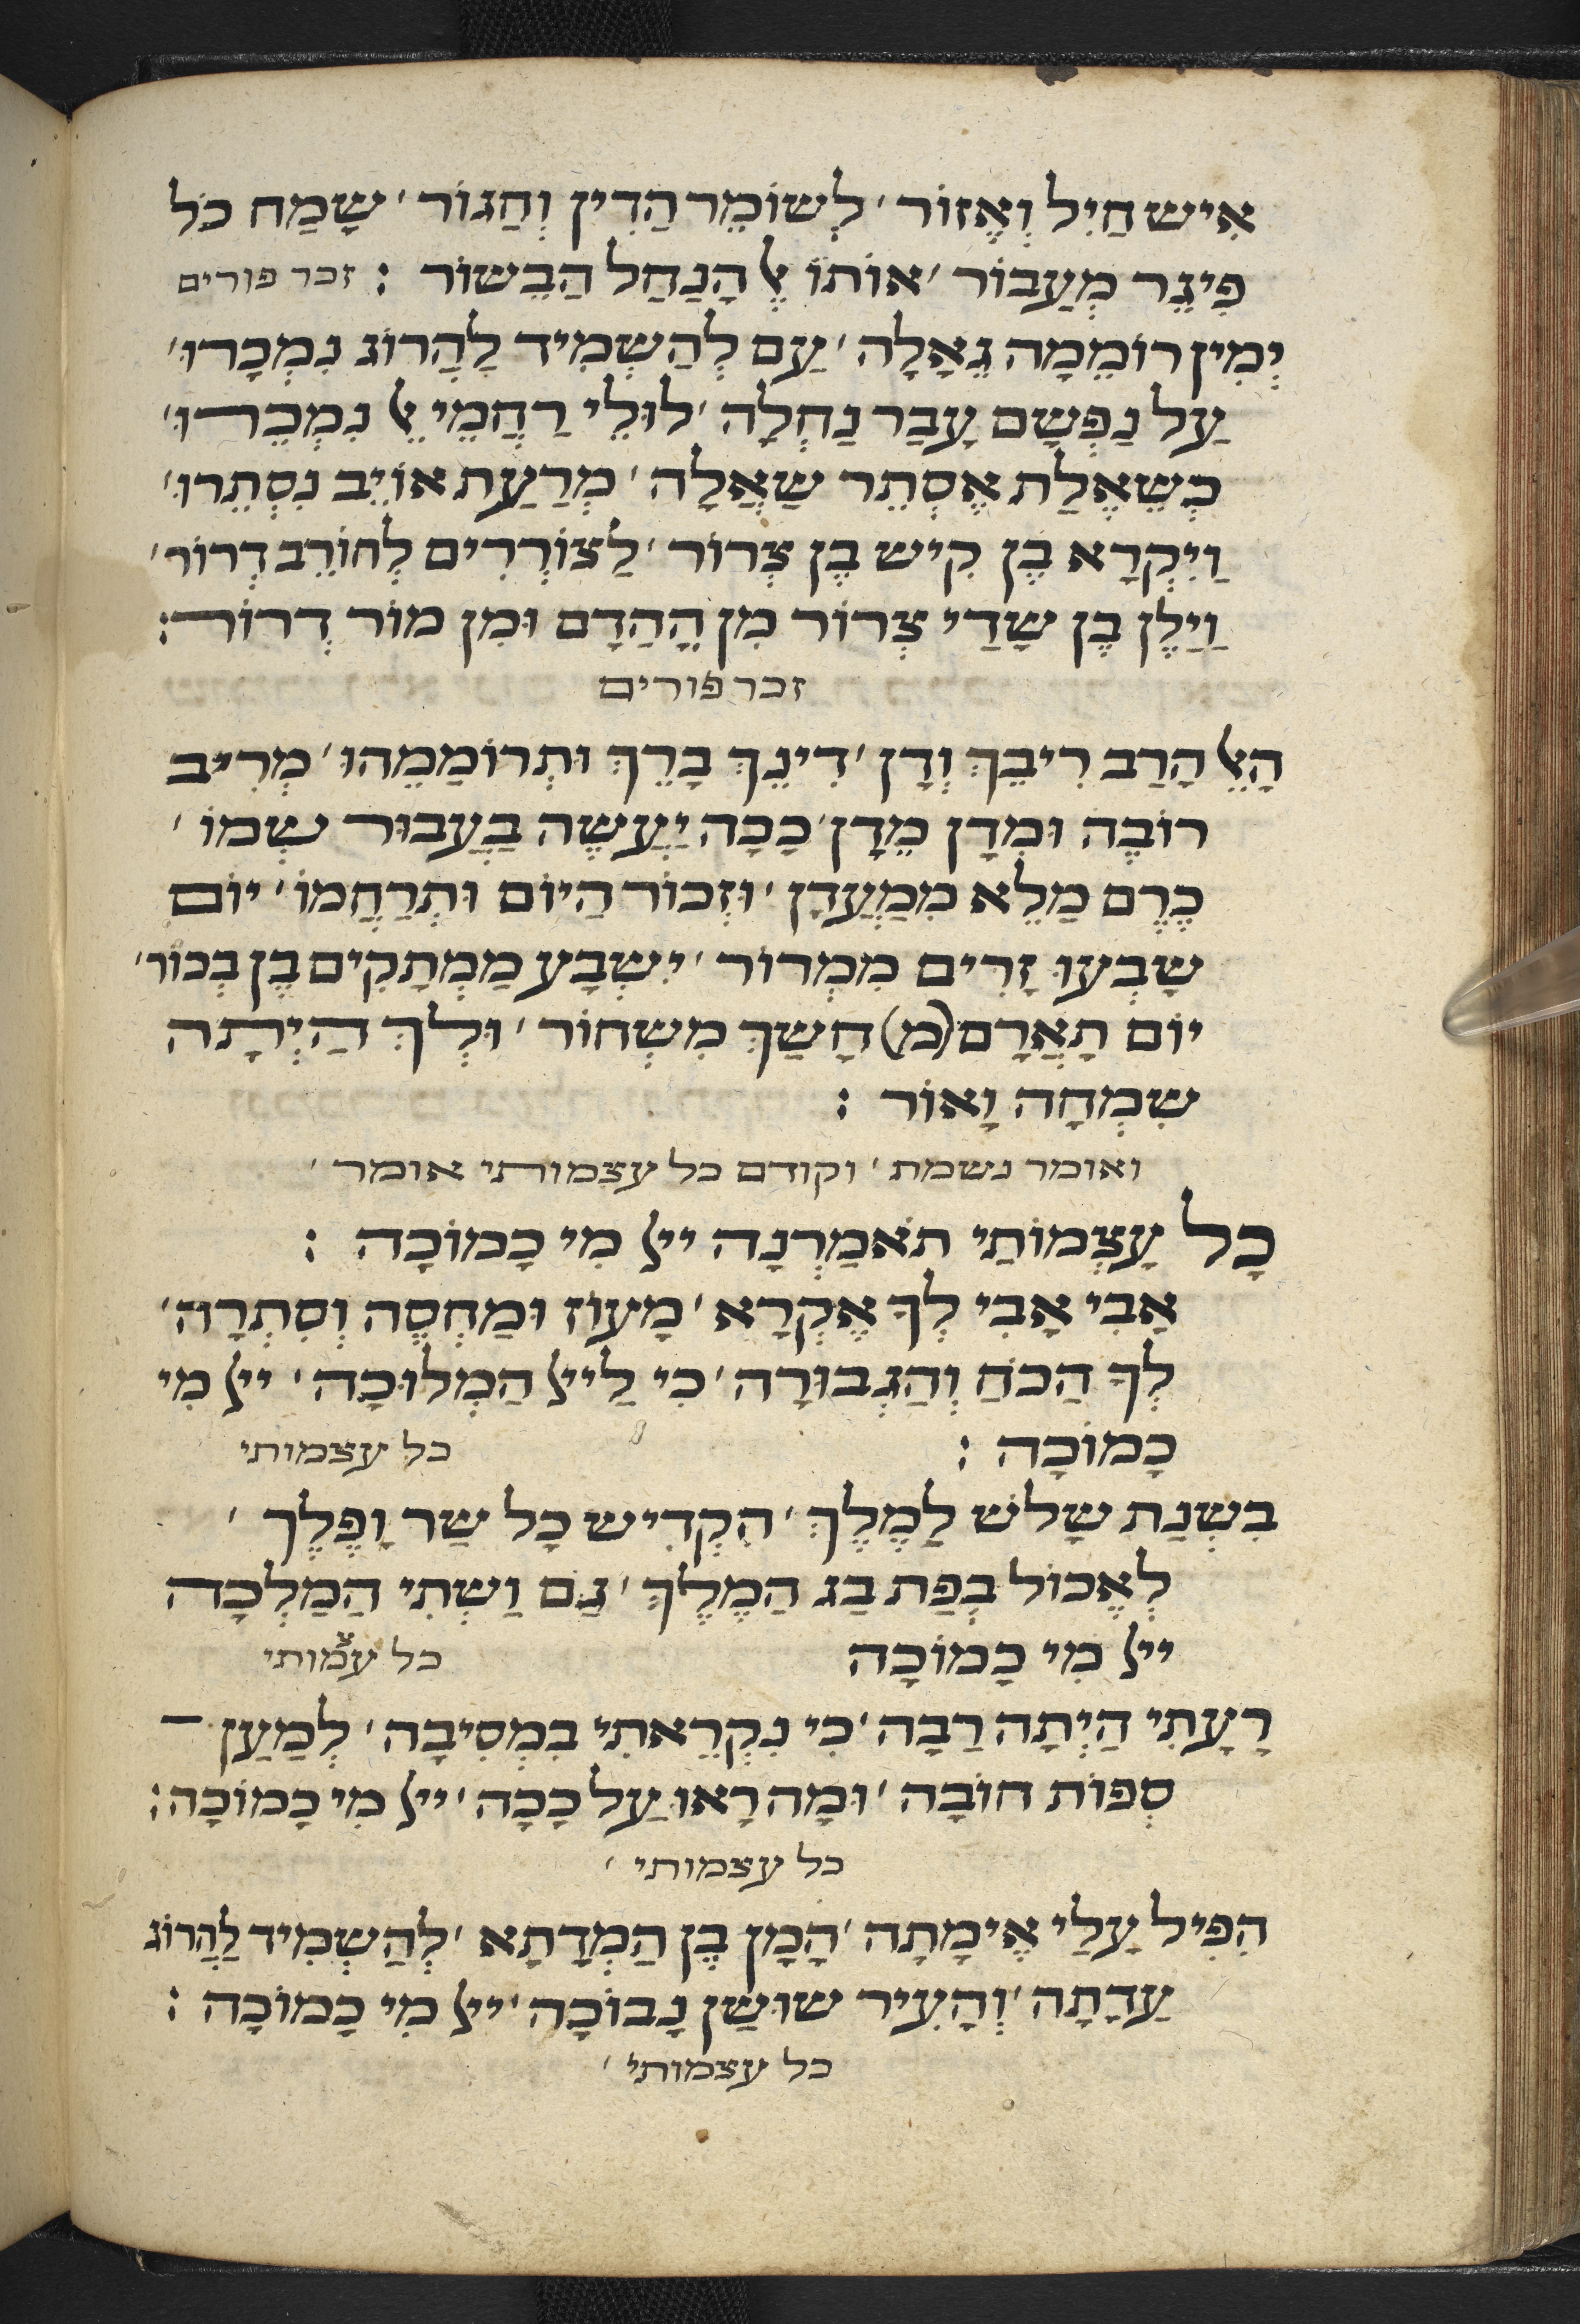 אִישׁ חַיִל וְאֱזוֹר׳ לְשׁוֹמֵר הַדִין וְחַגוֹר׳ שָׂמַח כֹּל
פִיגֵר מְעַבוֹר׳ אוֹתוֹ אֶל הָנַחַל הַבְשׂוֹר : זכר פורים
יְמִין רוֹמֵמָה גֶאָלָה׳ עַם לְהַשְׁמִיד לַהֲרוֹג נִמְכָרוּ׳
עַל נַפְשָׁם עָבַר נַחְלָה׳ לוּלֵי רַחֲמֵי אֵל נִמְכֵרוּ׳
כְשֶׁאֶלַת אֶסְתֵר שַׁאֲלָה׳ מְרַעַת אוֹיֵב נִסְתֵרוּ׳
וַיִקְרָא בֶן קִישׁ בֶן צְרוֹר׳ לַצוֹרְרִים לְחוֹרֵב דְרוֹר׳
וַיַלֶן בֶן שָׁדַי צְרוֹר מִן הֲהַדָם וּמִן מוֹר דְרוֹר :
זכר פורים
הָאֵל הָרַב רִיבֵךְ וְדָן׳ דִינֵךְ בָרֵךְ וּתְרוֹמַמֵהוּ׳ מְרִיב
רוֹבֶה וּמְדָן מֵדָן׳ כָכָה יַעֲשֶׂה בַעֲבוּר שְׁמוֹ׳
כֶרֶם מַלֵא מִמַעֲדָן׳ וּזְכוֹר הַיוֹם וּתְרַחֲמוֹ׳ יוֹם
שָׂבְעוּ זָרִים מִמְרוֹר׳ יִשְׂבָע מַמְתָקִים בֶן בְכוֹר׳
יוֹם תָאֲרָם (מ) חָשַׁךְ מִשְׁחוֹר׳ וּלְךְ הַיְתָה
שִׂמְחָה וָאוֹר :
ואומר נשמת׳ וקודם כל עצמותי אומר׳
כָל עָצְמוֹתַי תֹאמַרְנָה ייי מִי כָמוֹכָה :
אָבִי אָבִי לְךָ אֶקְרָא׳ מָעוֹז וּמַחְסֶה וְסִתְרָה׳
לְךָ הַכֹּחַ וְהַגְבוּרָה׳ כִי לַייי הַמְלוּכָה׳ ייי מִי
כָמוֹכָה : כל עצמותי
בִשְׁנַת שָׁלשׁ לַמֶלֶךְ׳ הִקְדִישׁ כָל שַׂר וָפֶלֶךְ׳
לְאֶכוֹל בְפַת בַג הַמֶלֶךְ׳ גַם וַשְׁתִי הַמַלְכָה
ייי מִי כָמוֹכָה כל עצמותי
רָעָתִי הַיְתָה רַבָה׳ כִי נִקְרֵאתִי בִמְסִיבָה׳ לְמַעַן
סְפוֹת חוֹבָה׳ וּמָה רָאוּ עַל כָכָה׳ ייי מִי כָמוֹכָה :
כל עצמותי׳
הִפִּיל עָלַי אֶימָתָה׳ הָמָן בֶן הַמְדָתָא׳ לְהַשְׁמִיד לַהֲרוֹג
עַדָתָה׳ וְהָעִיר שׁוּשַׁן נָבוֹכָה׳ ייי מִי כָמוֹכָה :
כל עצמותי׳